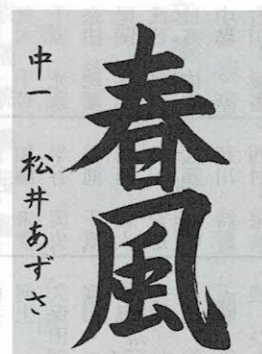 春風
中一 松井あずさ